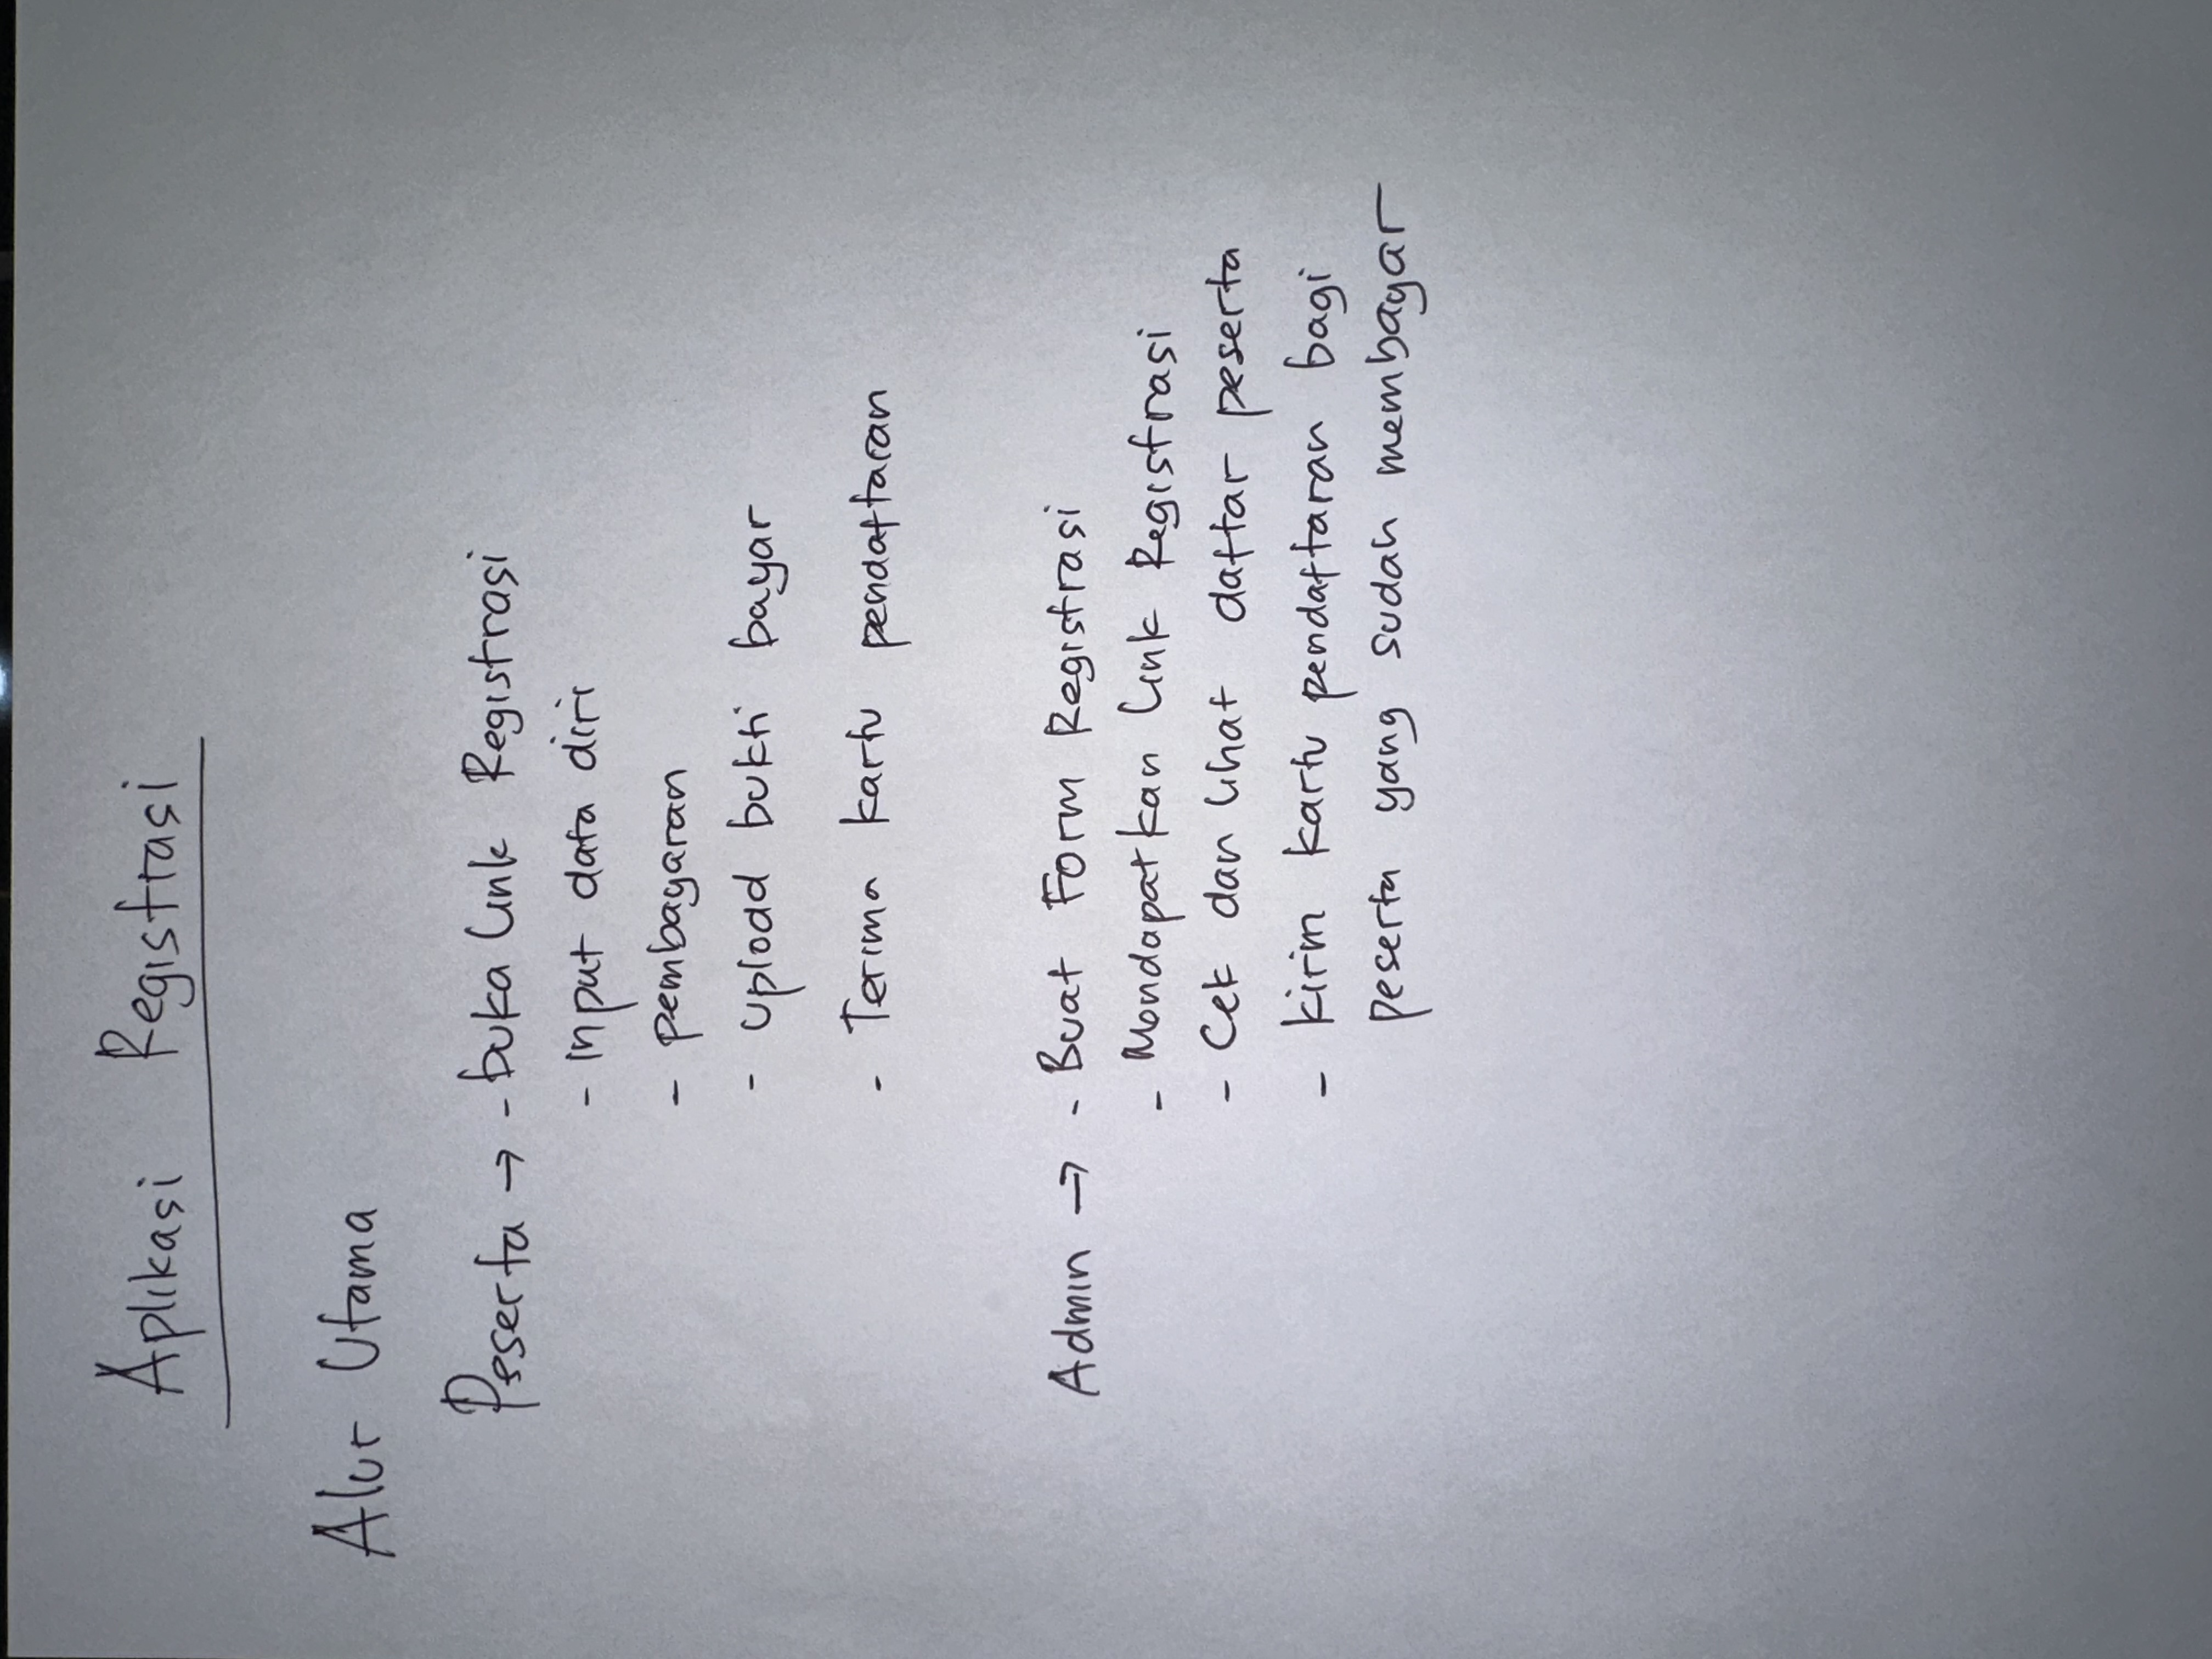 Aplikasi Registrasi
Alur Utama
Peserta → - buka Link Registrasi
- input data diri
- pembayaran
- upload bukti bayar
- Terima kartu pendaftaran
Admin → - Buat Form Registrasi
- Mendapatkan Link Registrasi
- Cek dan Lihat daftar peserta
- kirim kartu pendaftaran bagi
peserta yang sudah membayar